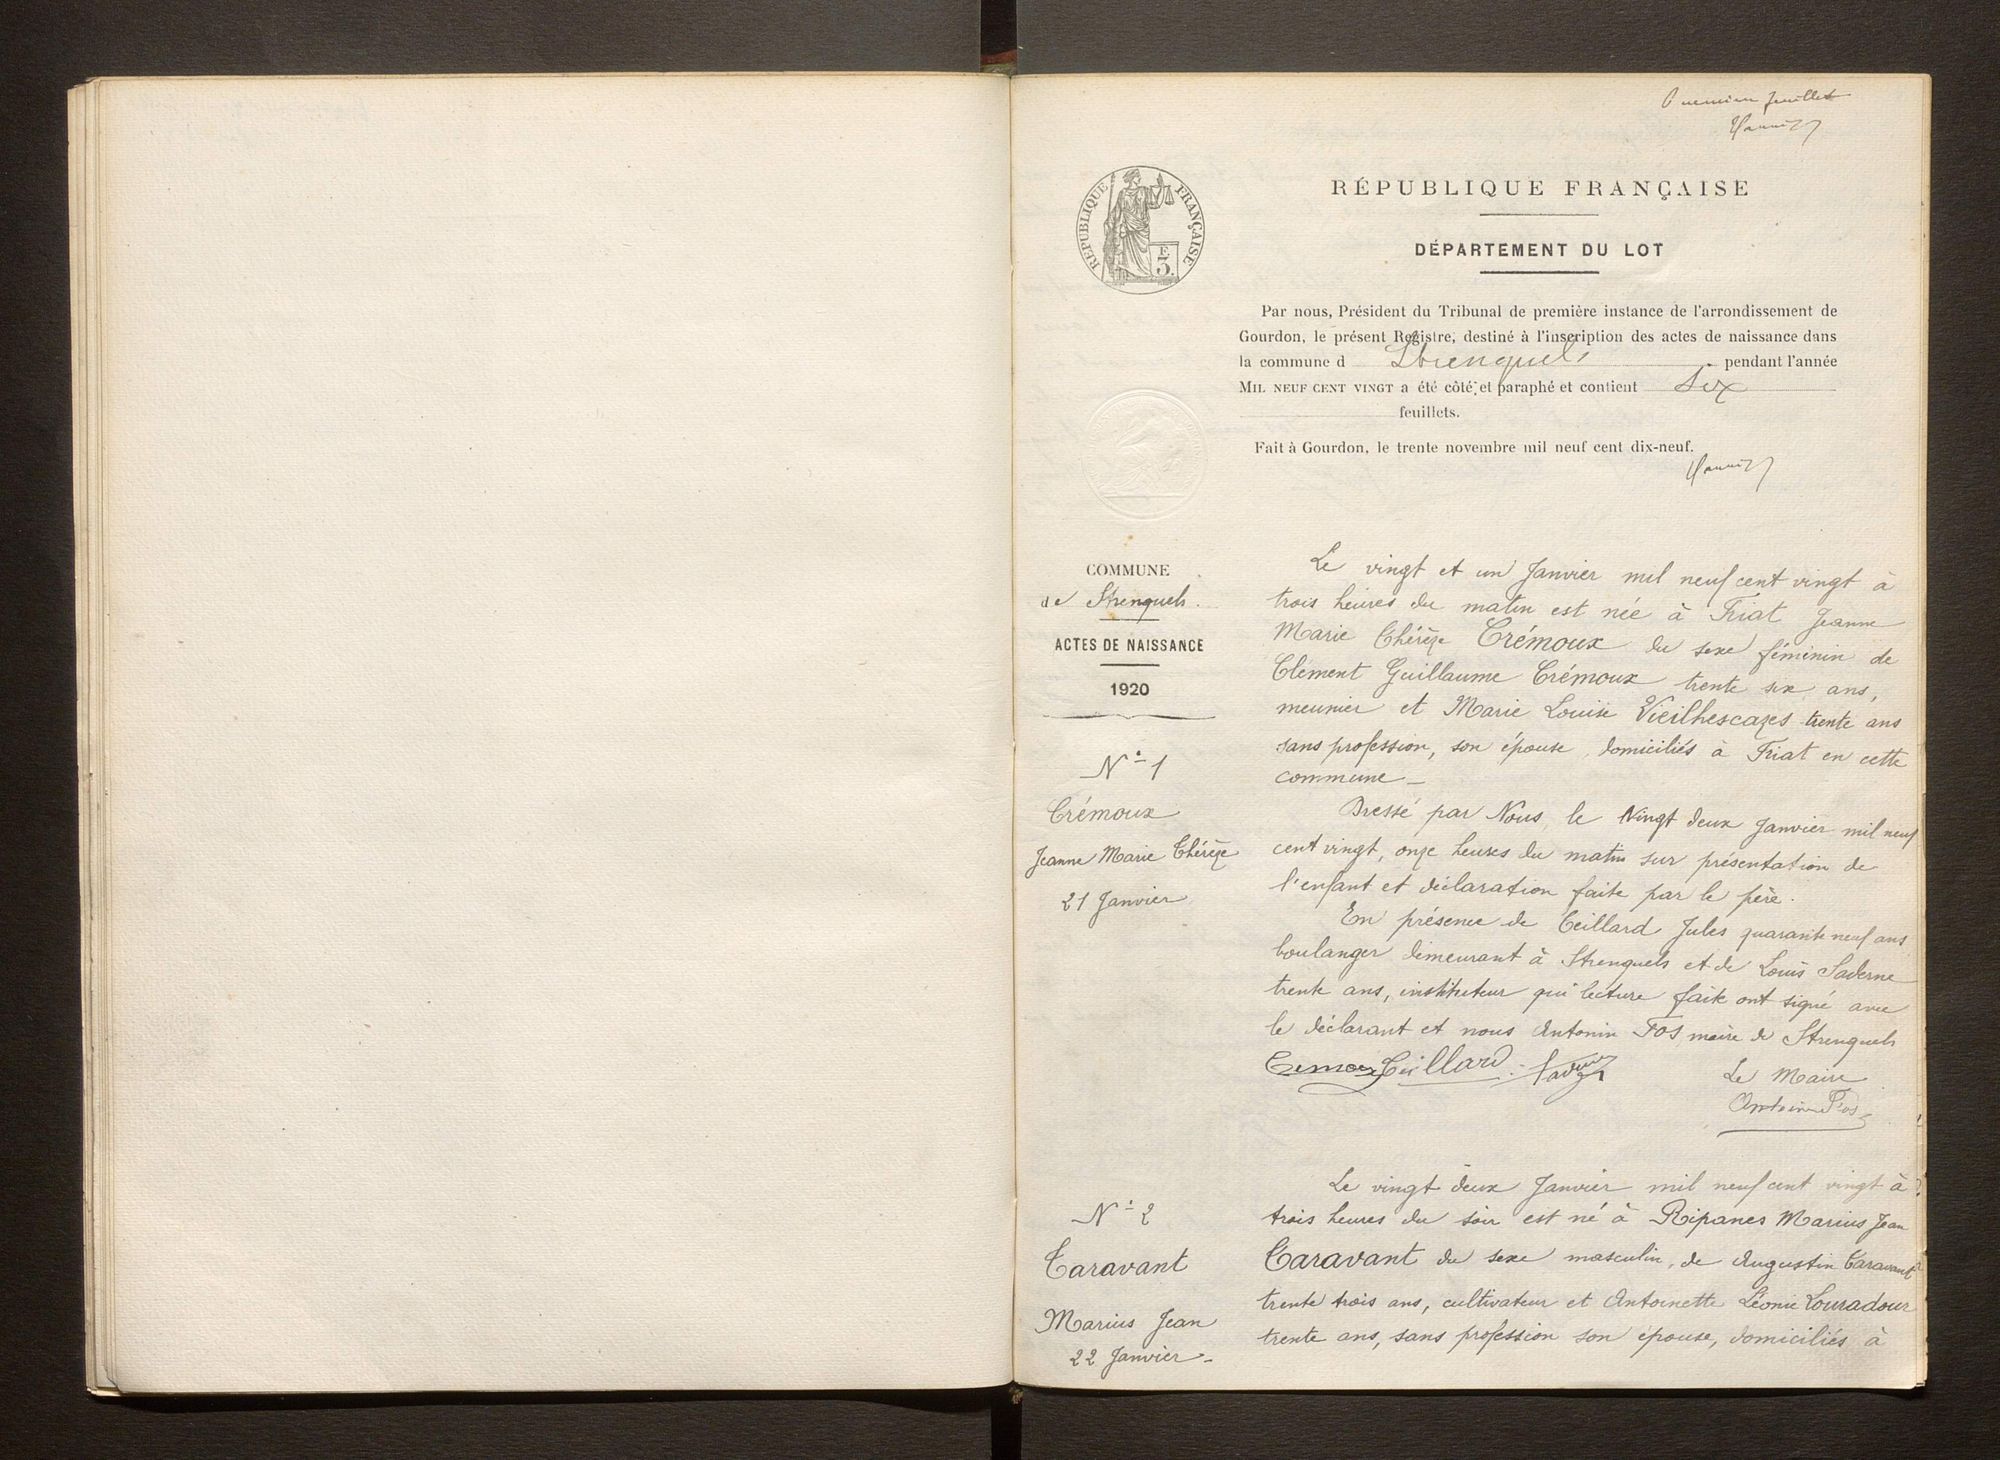 Premier feuillet
RÉPUBLIQUE FRANÇAISE
RÉPUBLIQUE FRANÇAISE
F
3.
DÉPARTEMENT DU LOT
Par nous, Président du Tribunal de première instance de l'arrondissement de
Gourdon, le présent Registre, destiné à l'inscription des actes de naissance dans
la commune d Strenquels pendant l'année
MIL NEUF CENT VINGT a été côté et paraphé et contient Six
feuillets.
Fait à Gourdon, le trente novembre mil neuf cent dix-neuf.
COMMUNE
de Strenquels.
ACTES DE NAISSANCE
1920
N° 1
Crémoux
Jeanne Marie Thérèze
21 Janvier
Le vingt et un Janvier mil neuf cent vingt à
trois heures du matin est née à Friat Jeanne
Marie Thérèze Crémoux du sexe féminin de
Clément Guillaume Crémoux trente six ans,
meunier et Marie Louise Vieilhescazes trente ans
sans profession, son épouse, domiciliés à Friat en cette
commune —
Dressé par Nous, le Vingt deux Janvier mil neuf
cent vingt, onze heures du matin sur présentation de
l'enfant et déclaration faite par le père.
En présence de Teillard Jules quarante neuf ans
boulanger demeurant à Strenquels et de Louis Laderne
trente ans, instituteur qui lecture faite ont signé avec
le déclarant et nous Antonin Fos maire de Strenquels
Cremoux Teillard
Le Maire
Antonin Fos
N° 2
Taravant
Marius Jean
22 Janvier -
Le vingt deux Janvier mil neuf cent vingt à
trois heures du soir est né à Ripanes Marius Jean
Taravant du sexe masculin, de Augustin Taravant
trente trois ans, cultivateur et Antoinette Léonie Louradour
trente ans, sans profession son épouse, domiciliés à